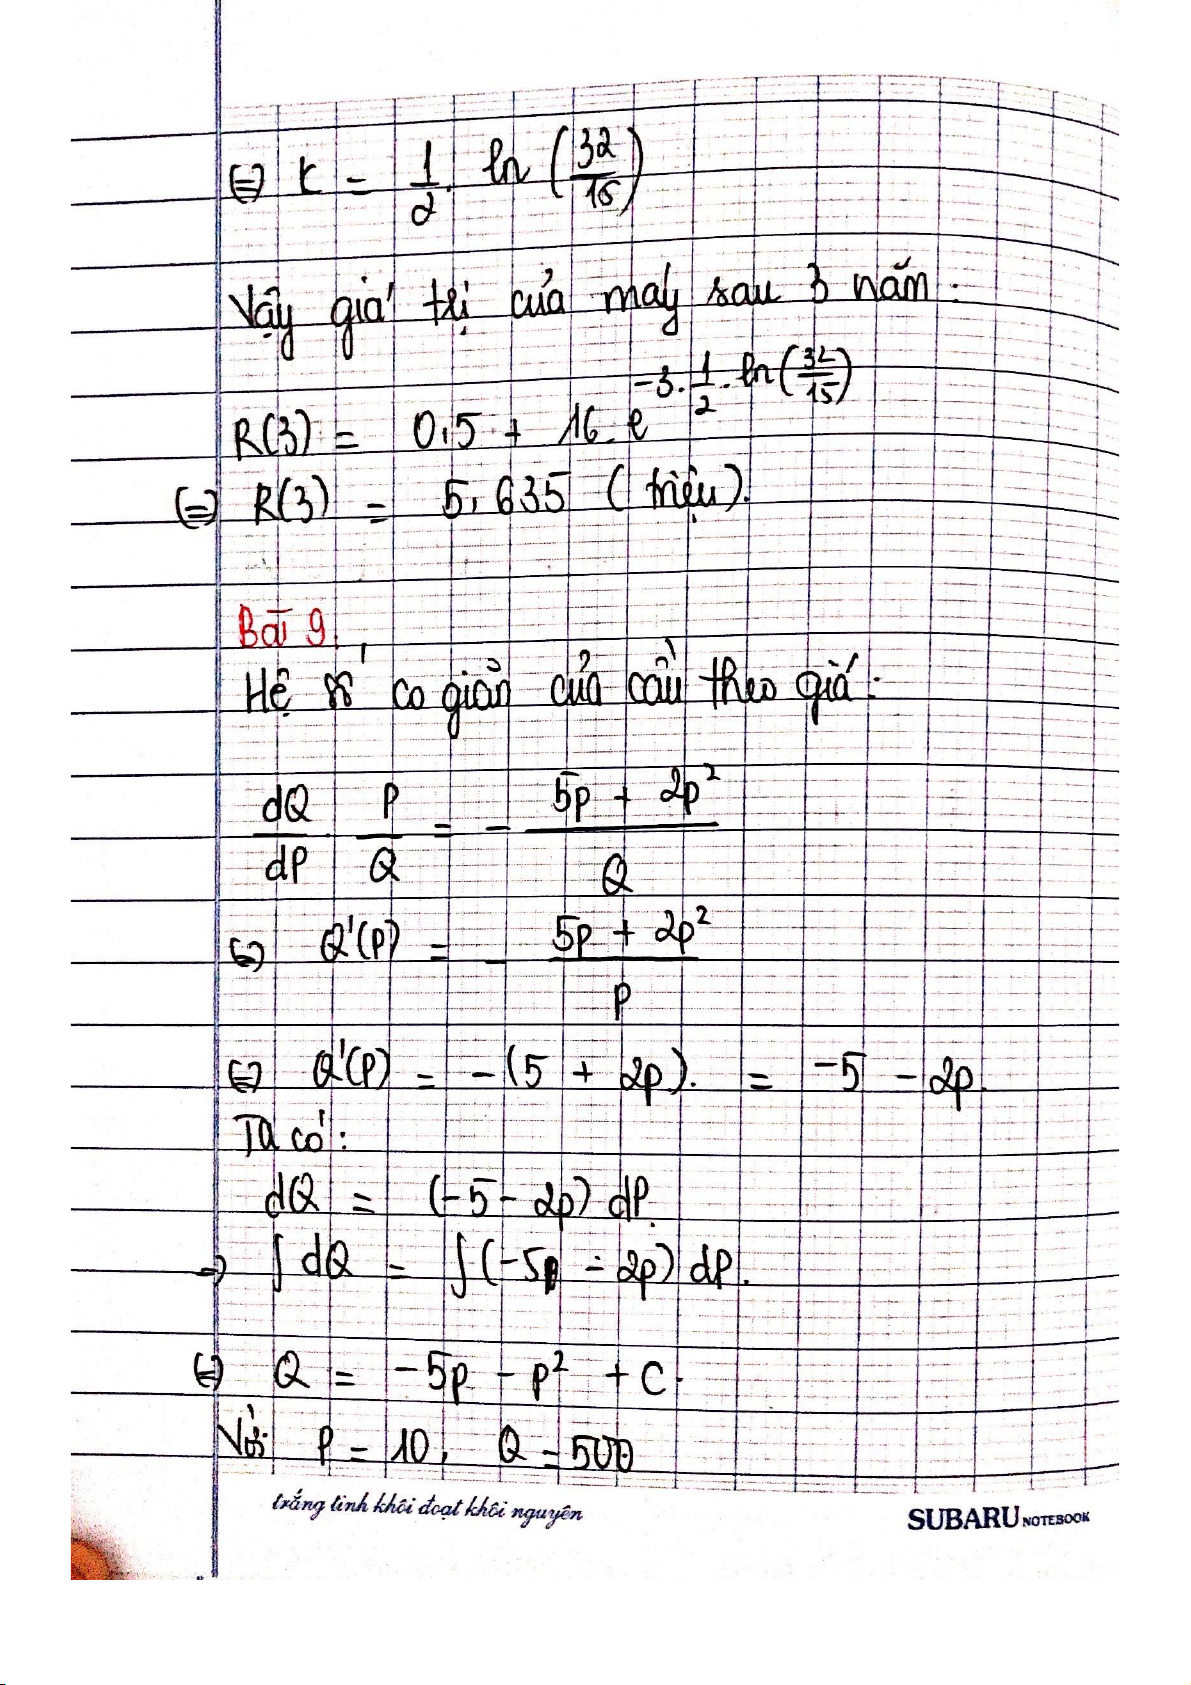 (=) k = 1/2 . ln (32/15)
Vậy giá trị của máy sau 3 năm :
R(3) = 0,5 + 16 . e^(-3 . 1/2 . ln(32/15))
(=) R(3) = 5,635 ( triệu ).
Bài 9 :
Hệ số co giãn của cầu theo giá :
dQ/dP . P/Q = - (5p + 2p²)/Q
(=) Q'(P) = - (5p + 2p²)/p
(=) Q'(P) = -(5 + 2p). = -5 - 2p.
Ta có :
dQ = (-5 - 2p) dP.
=) ∫ dQ = ∫ (-5 - 2p) dP.
(=) Q = -5p - p² + C.
Với P = 10, Q = 500
trắng tinh khôi đoạt khôi nguyên
SUBARU NOTEBOOK